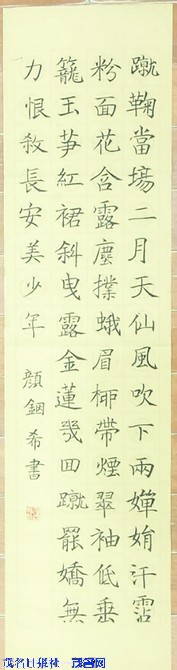 蹴鞠當場二月天仙風吹下兩嬋娟汗霑
粉面花含露塵撲蛾眉柳帶煙翠袖低垂
籠玉笋紅裙斜曳露金蓮幾回蹴罷嬌無
力恨殺長安美少年 顏錮希書
茂名日报社 茂名网